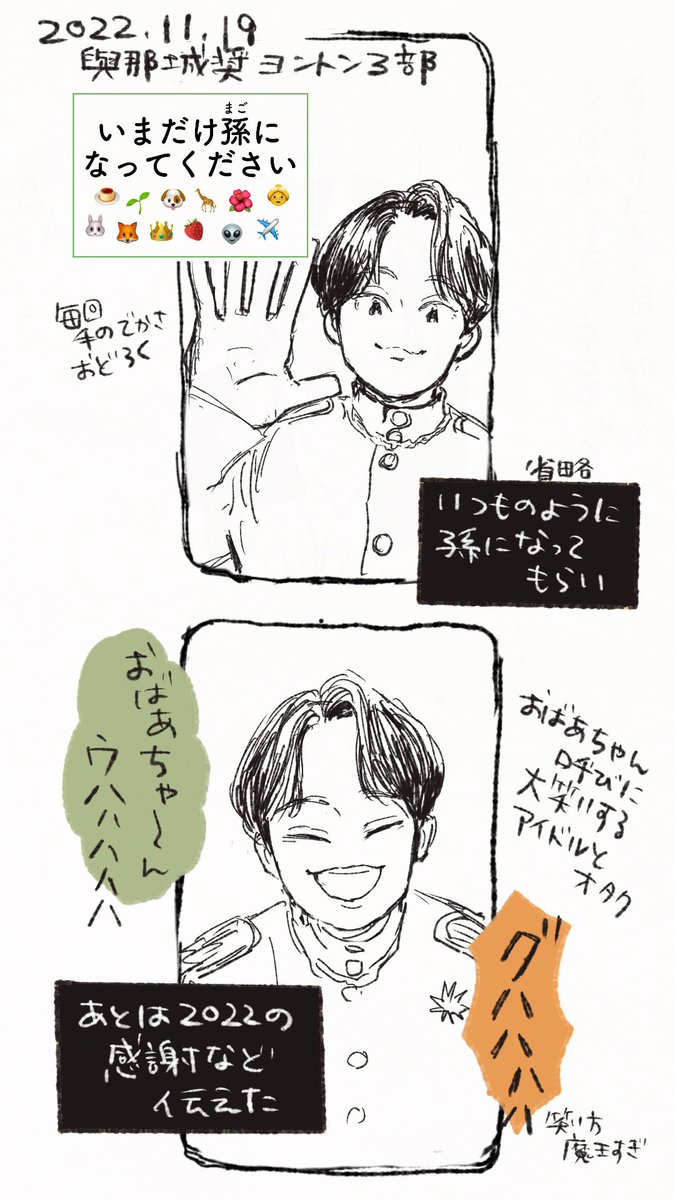 2022.11.19
與那城奨 ヨントン3部
まご
いまだけ孫に
なってください
毎回
手のでかさ
おどろく
省略
いつものように
孫になって
もらい
おばあちゃ〜ん
ウハハハハハ
おばあちゃん
呼びに
大笑いする
アイドルと
オタク
グハハハハ
あとは2022の
感謝など
伝えた
笑い方
魔王すぎ